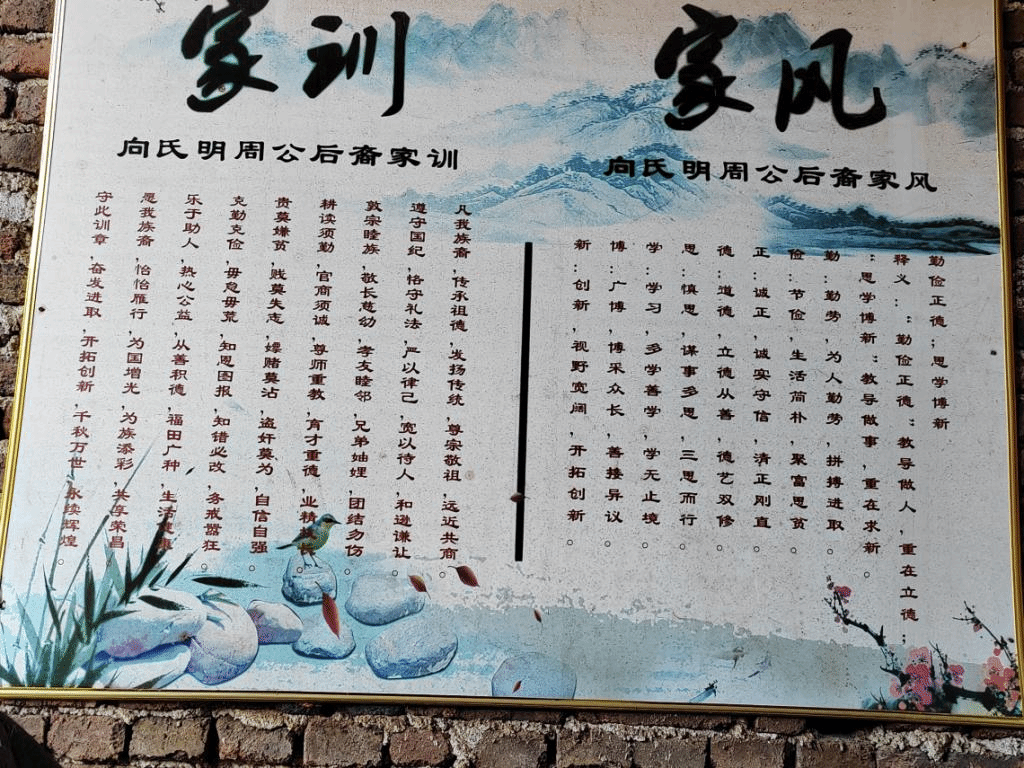 家训
向氏明周公后裔家训
凡我族裔,传承祖德,发扬传统,尊宗敬祖,远近共商。
遵守国纪,恪守礼法,严以律己,宽以待人,和逊谦让。
敦宗睦族,敬长慈幼,孝友睦邻,兄弟妯娌,团结勿伤。
耕读须勤,官商须诚,尊师重教,育才重德,业精长。
贵莫嫌贫,贱莫失志,嫖赌莫沾,盗奸莫为,自信自强。
克勤克俭,毋怠毋荒,知恩图报,知错必改,务戒嚣狂。
乐于助人,热心公益,从善积德,福田广种,生活。
愿我族裔,怡怡雁行,为国增光,为族添彩,共享荣昌。
守此训章,奋发进取,开拓创新,千秋万世,永续辉煌。
家风
向氏明周公后裔家风
勤俭正德;思学博新
释义:“勤俭正德”:教导做人,重在立德;
“思学博新”:教导做事,重在求新。
勤:勤劳,为人勤劳,拼搏进取。
俭:节俭,生活简朴,聚富思贫。
正:诚正,诚实守信,清正刚直。
德:道德,立德从善,德艺双修。
思:慎思,谋事多思,三思而行。
学:学习,多学善学,学无止境。
博:广博,博采众长,善接异议。
新:创新,视野宽阔,开拓创新。